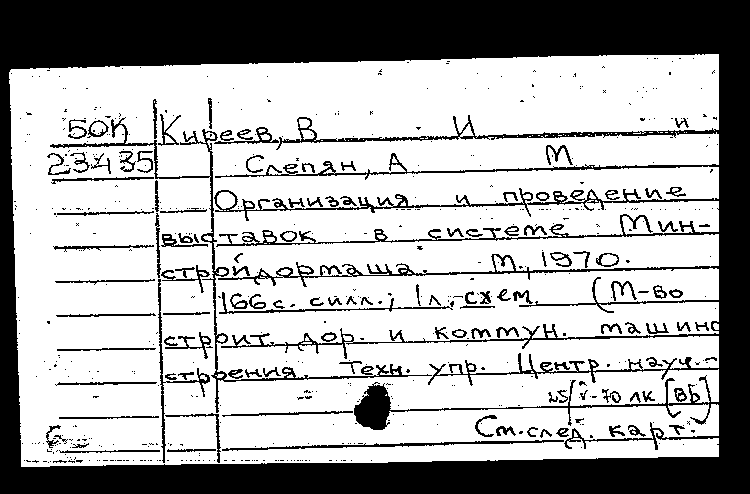 50К Киреев, В И и
23435 Слепян, А М
Организация и проведение
выставок в системе Мин-
стройдормаша. М., 1970.
166 с. силл.; 1 л. схем. (М-во
строит., дор. и коммун. машино
строения. Техн. упр. Центр. науч.-
25/V-70 лк [ВБ]
См. след. карт.